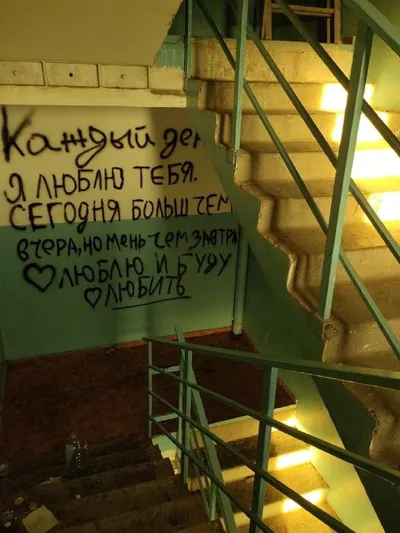 Каждый ден
Я ЛЮБЛЮ ТЕБЯ.
СЕГОДНЯ БОЛЬШ ЧЕМ
ВЧЕРА, НО МЕНЬ ЧЕМ ЗАВТРА
♡ЛЮБЛЮ И БУДУ
♡ЛЮБИТЬ